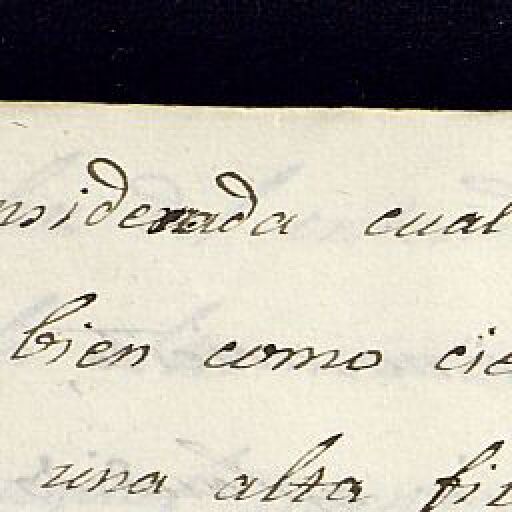 nsiderada cual
bien como cie
una alta fi